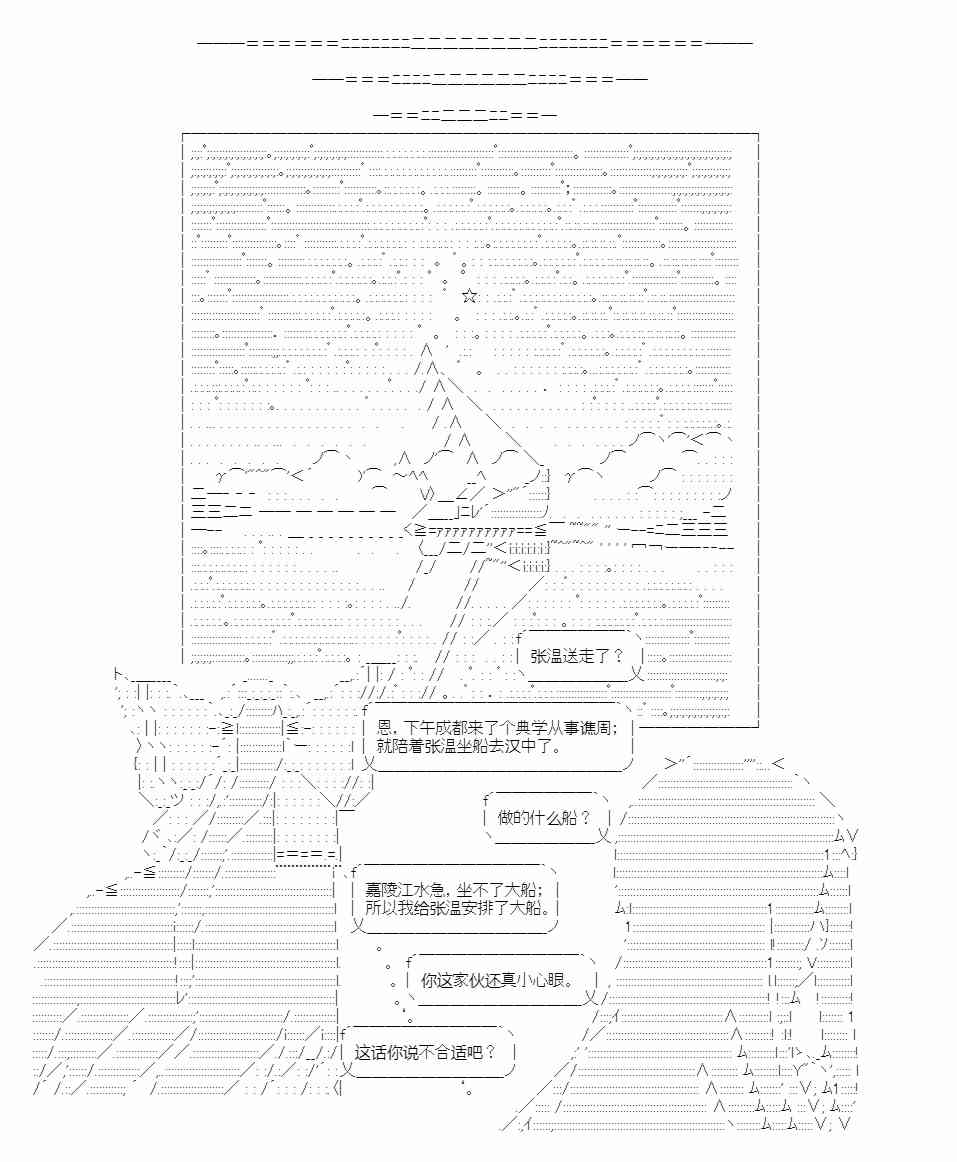 张温送走了？
恩，下午成都来了个典学从事谯周；
就陪着张温坐船去汉中了。
做的什么船？
嘉陵江水急，坐不了大船；
所以我给张温安排了大船。
你这家伙还真小心眼。
这话你说不合适吧？